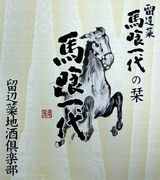 留辺蘂
馬喰一代の栞
馬喰一代
留辺蘂地酒倶楽部